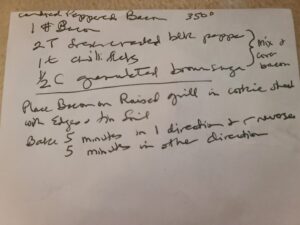 Candied Peppered Bacon 350°
1 # Bacon
2 T fresh cracked blk pepper
1 t chilli flakes
½ C granulated brown sugar
Mix & cover bacon
Place Bacon on Raised grill in cookie sheet
with Edges & tin foil
Bake 5 minutes in 1 direction & reverse
5 minutes in other direction